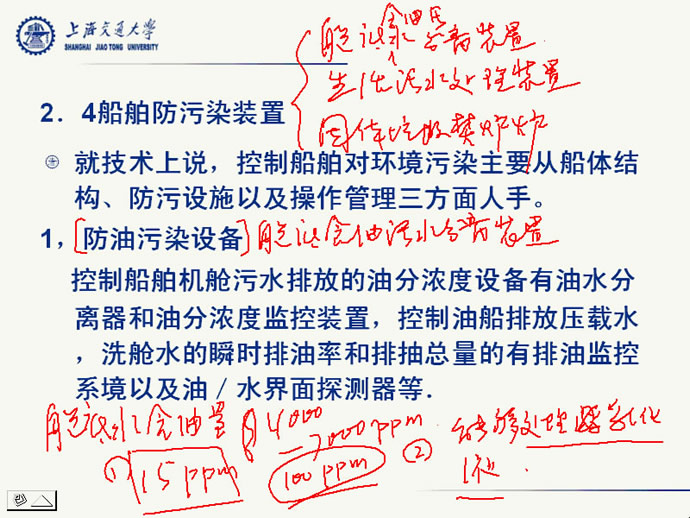 上海交通大学
SHANGHAI JIAO TONG UNIVERSITY
舱底含油压分离装置
生活污水处理装置
固体垃圾焚炉炉
2．4船舶防污染装置
就技术上说，控制船舶对环境污染主要从船体结
构、防污设施以及操作管理三方面人手。
1，[防油污染设备]舱底含油污水分离装置
控制船舶机舱污水排放的油分浓度设备有油水分
离器和油分浓度监控装置，控制油船排放压载水
，洗舱水的瞬时排油率和排抽总量的有排油监控
系境以及油／水界面探测器等．
舱底水含油量 4000
－7000ppm
① 15ppm 100ppm ② 能够处理 乳化
液．